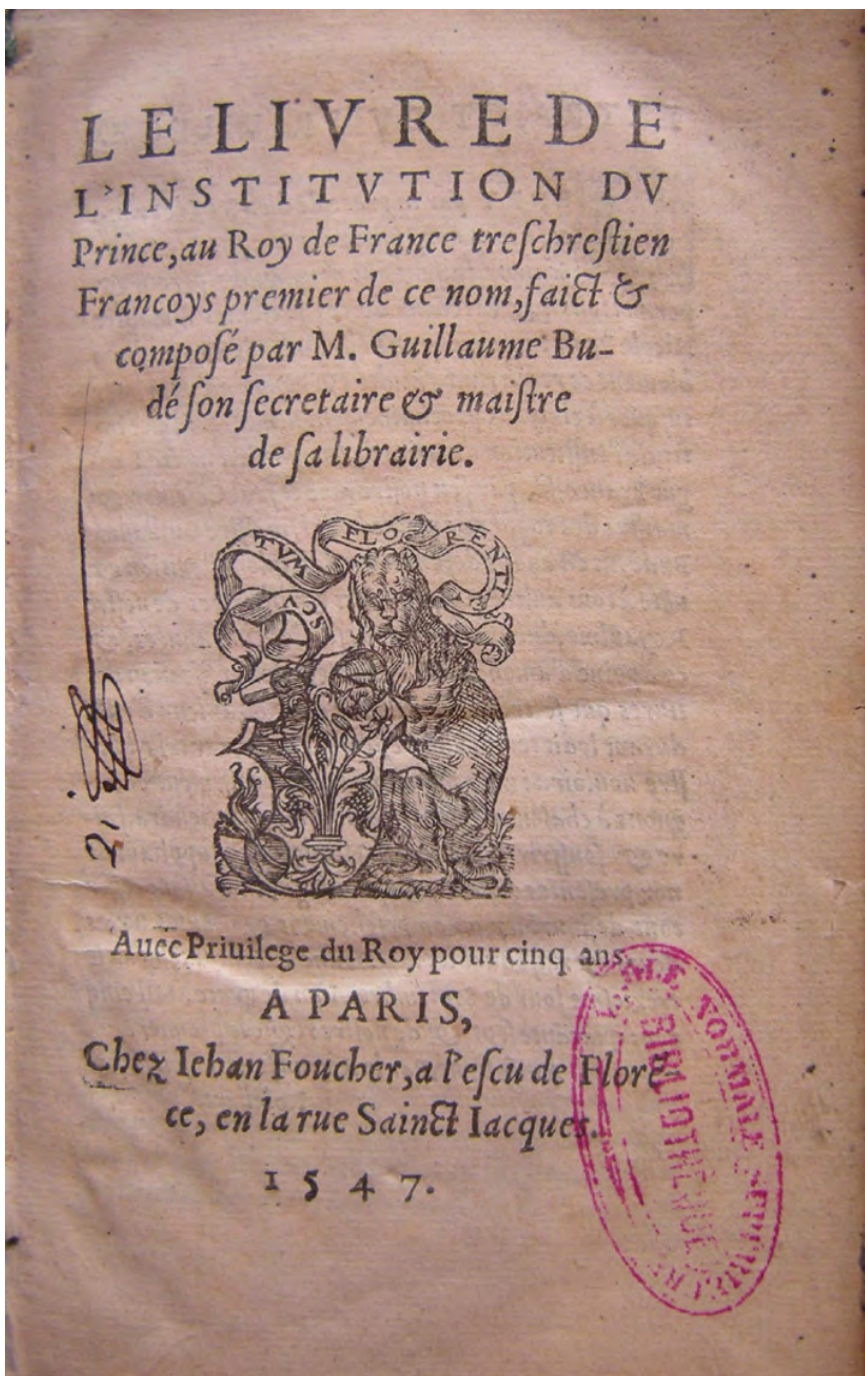 LE LIVRE DE
L'INSTITVTION DV
Prince, au Roy de France treſchreſtien
Francoys premier de ce nom, faict &
compoſé par M. Guillaume Bu-
dé ſon ſecretaire & maiſtre
de ſa librairie.
SCV TVM FLO RENTI
Auec Priuilege du Roy pour cinq ans.
A PARIS,
Chez Iehan Foucher, a l'eſcu de Florē
ce, en la rue Sainct Iacques.
1547.
2,
NORMALE
BIBLIOTHEQUE